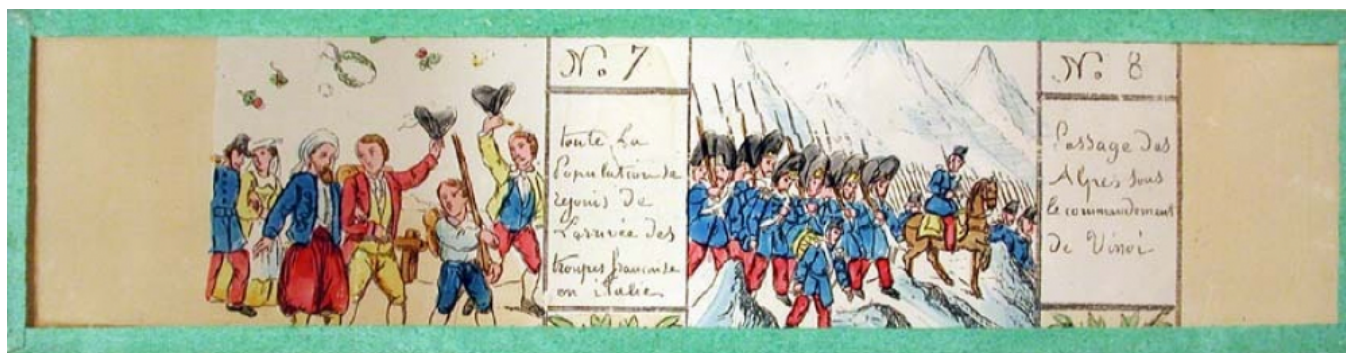 No 7
toute la
Population se
rejouis de
L'arrivée des
troupes francaise
en italie
No 8
Passage des
Alpes sous
le commandement
de Vinoi